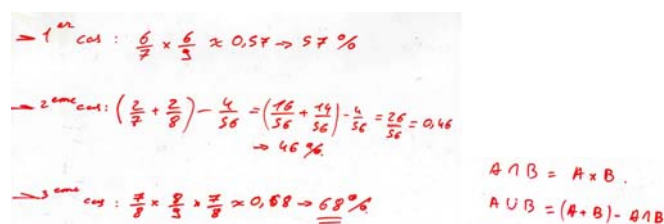 → 1er cas : 6/7 × 6/9 ≈ 0,57 → 57 %
→ 2eme cas : (2/7 + 2/8) - 4/56 = (16/56 + 14/56) - 4/56 = 26/56 = 0,46
→ 46 %.
→ 3eme cas : 7/8 × 8/9 × 7/8 ≈ 0,68 → 68 %.
A ∩ B = A × B .
A ∪ B = (A + B) - A ∩ B